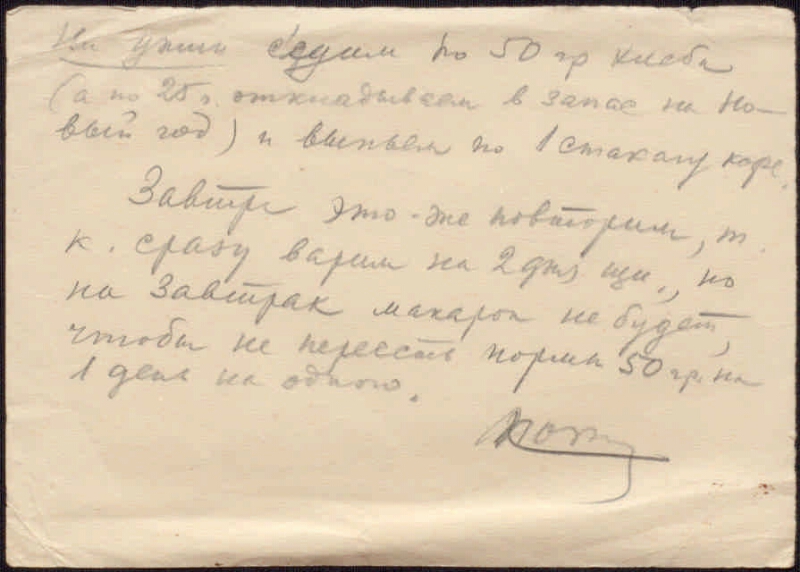 На ужин съедим по 50 гр хлеба
(а по 25 г. откладываем в запас на Но-
вый год) и выпьем по 1 стакану кофе.
Завтра это-же повторим, т.
к. сразу варим на 2 дня щи, но
на завтрак макарон не будет,
чтобы не переесть нормы 50 гр. на
1 день на одного.